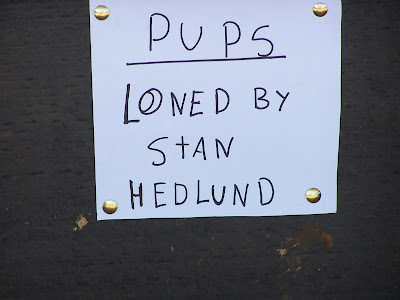 PUPS
LONED BY
STAN
HEDLUND